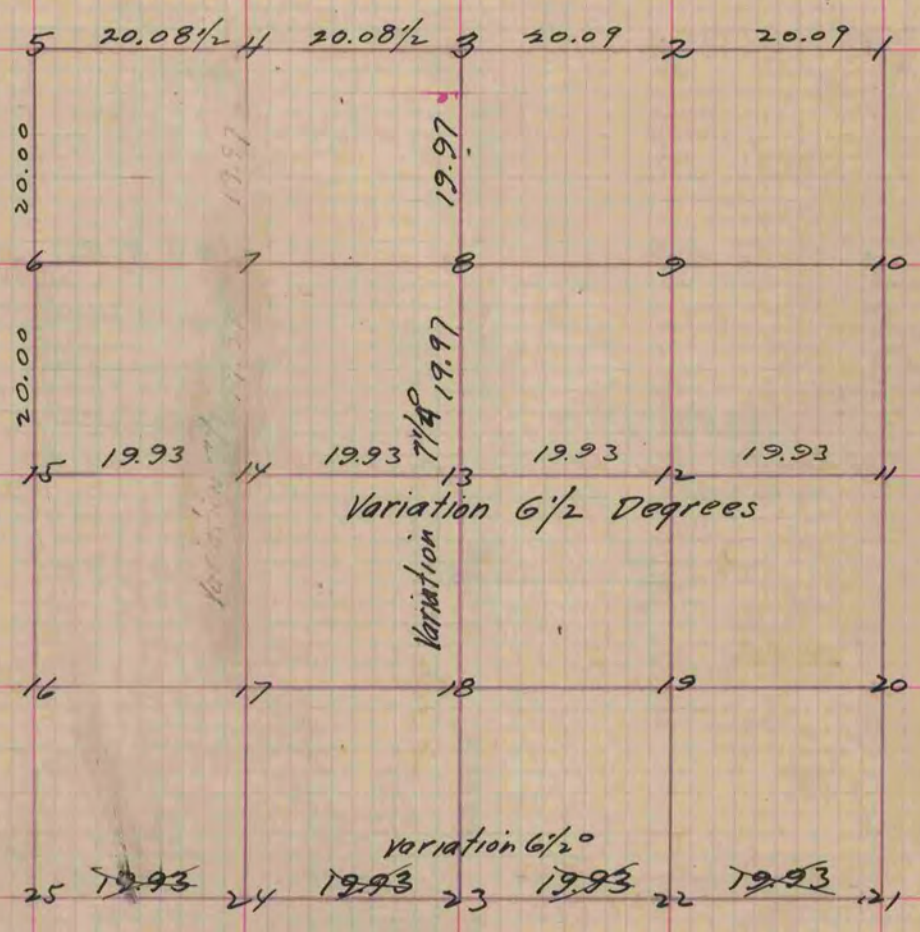 5 20.08½ 4 20.08½ 3 20.09 2 20.09 1
20.00
19.97
6 7 8 9 10
20.00
19.97
15 19.93 14 19.93 13 19.93 12 19.93 11
Variation 6½ Degrees
Variation 7¼°
16 17 18 19 20
variation 6½°
25 19.93 24 19.93 23 19.93 22 19.93 21